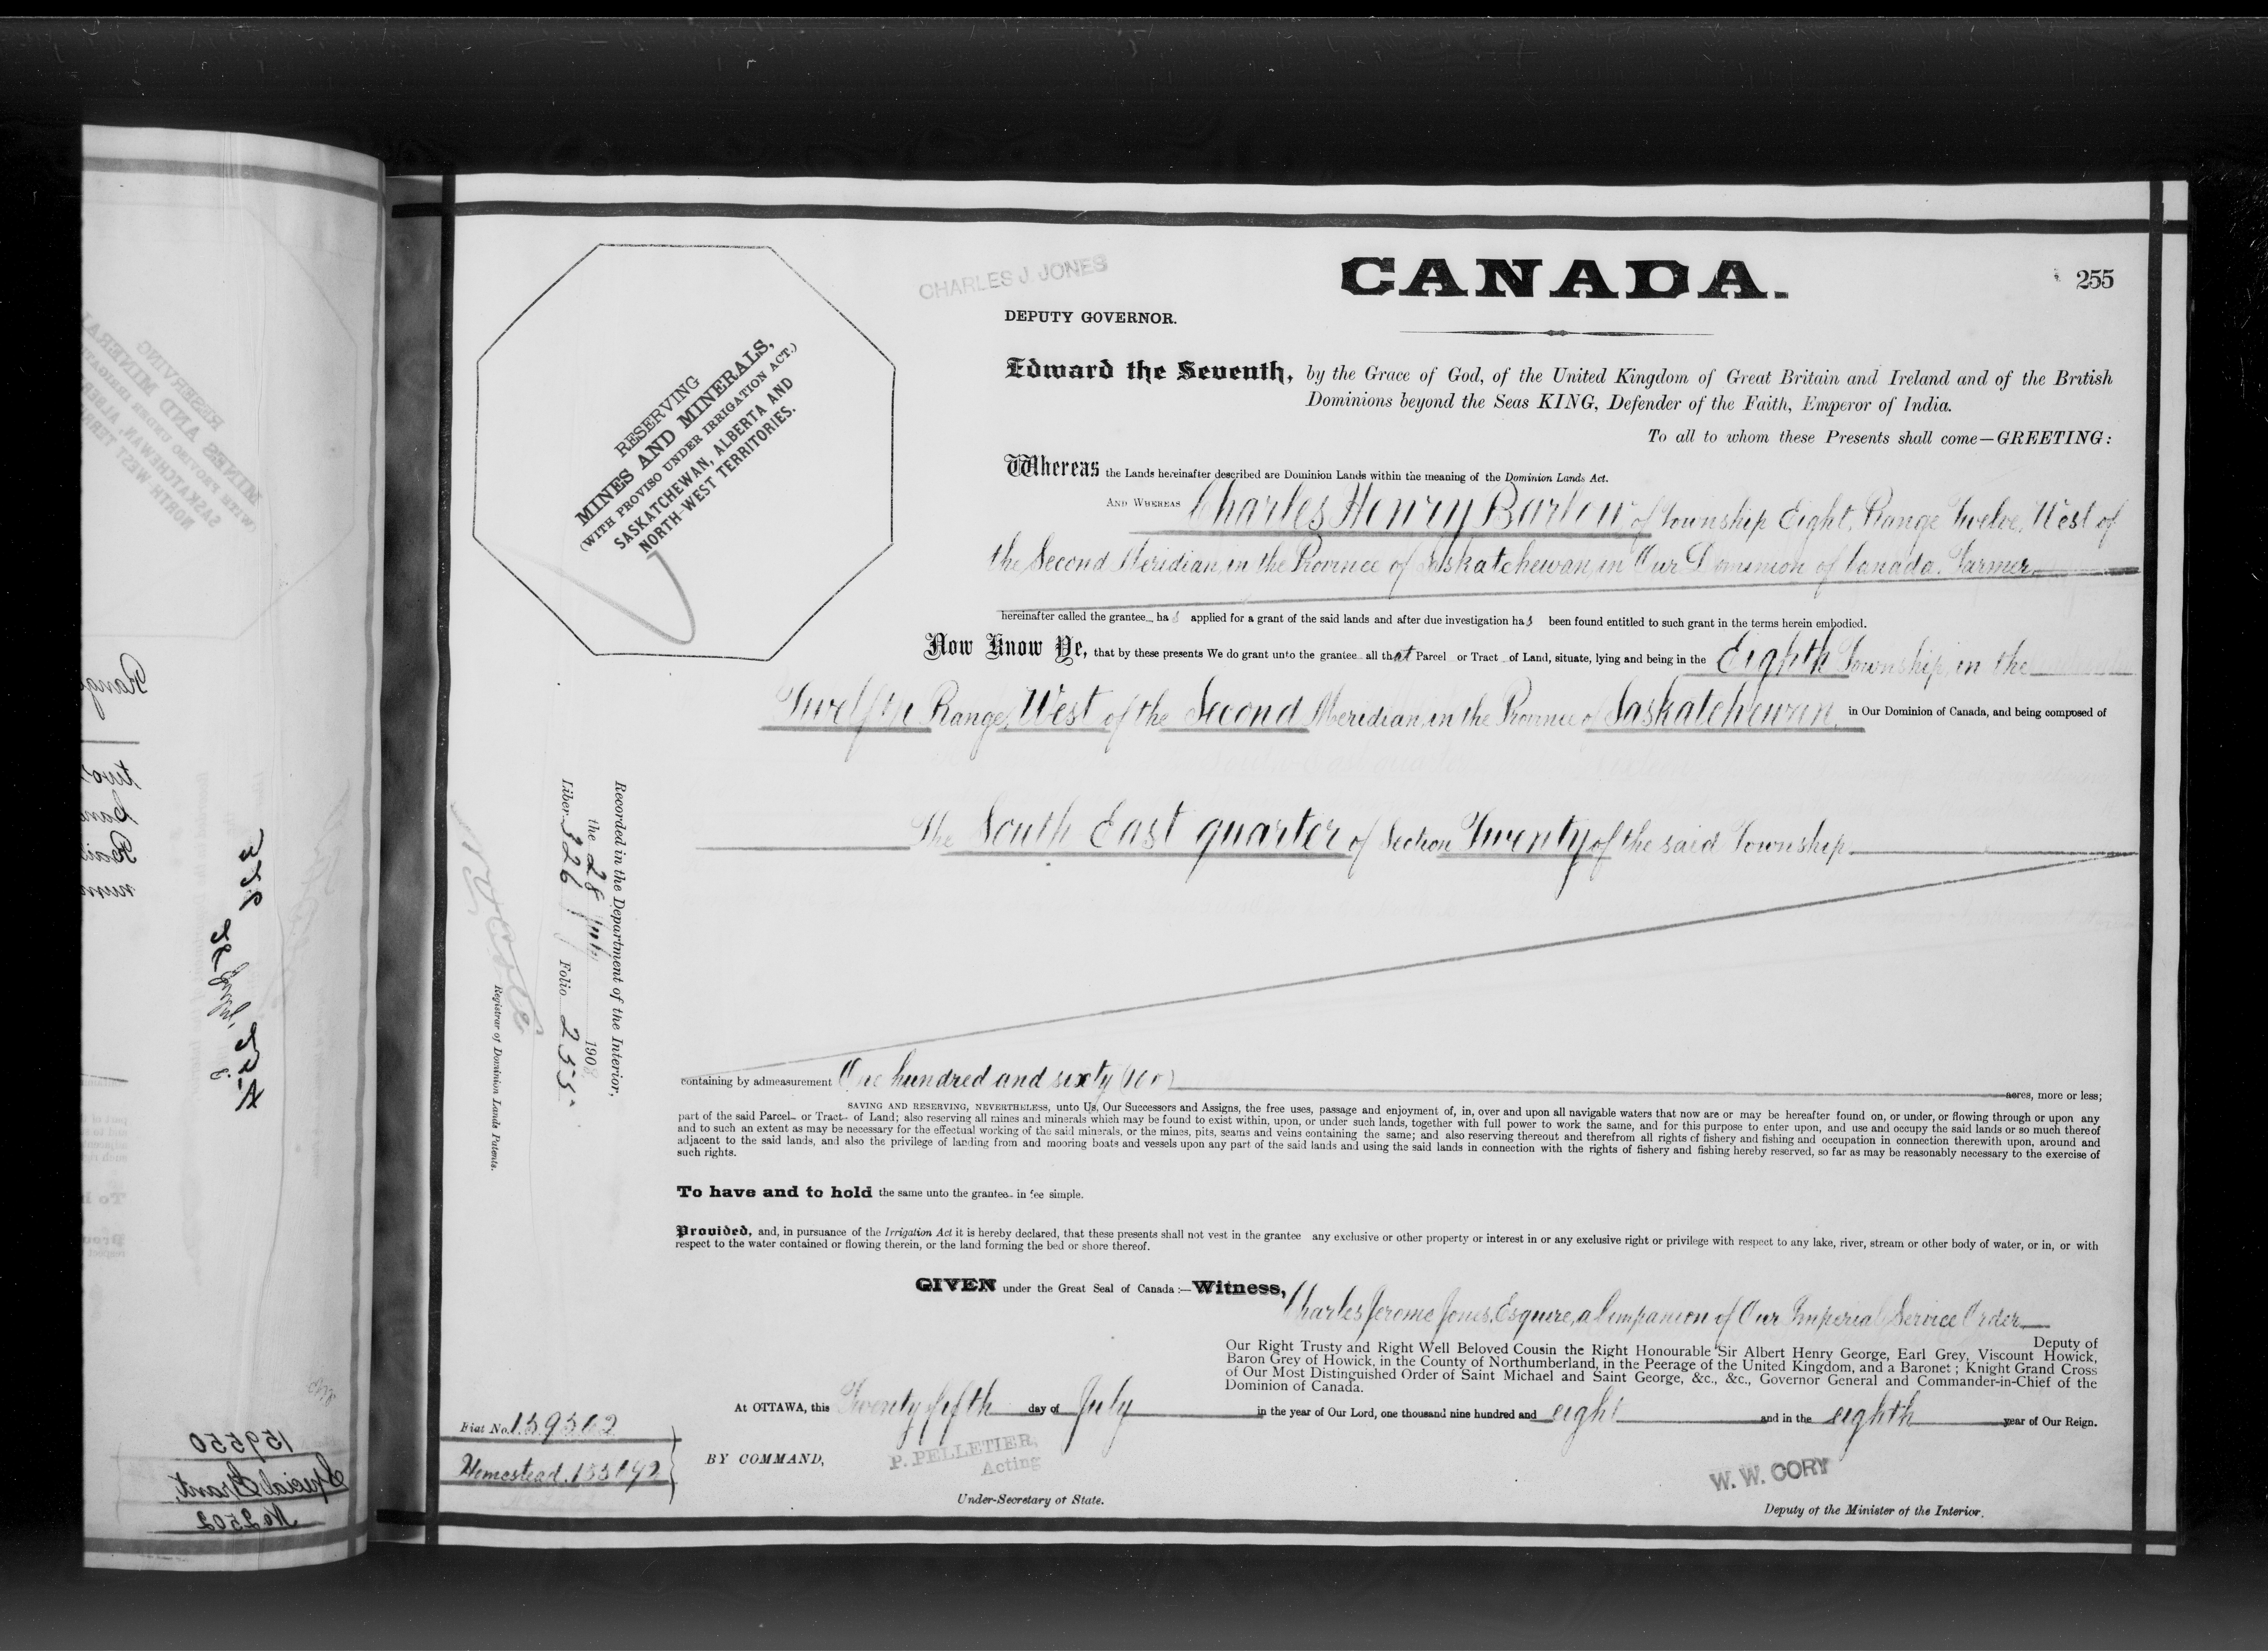 CHARLES J. JONES
CANADA.
255
DEPUTY GOVERNOR.
RESERVING
MINES AND MINERALS,
(WITH PROVISO UNDER IRRIGATION ACT.)
SASKATCHEWAN, ALBERTA AND
NORTH-WEST TERRITORIES.
Edward the Seventh, by the Grace of God, of the United Kingdom of Great Britain and Ireland and of the British
Dominions beyond the Seas KING, Defender of the Faith, Emperor of India.
To all to whom these Presents shall come—GREETING:
Whereas the Lands hereinafter described are Dominion Lands within the meaning of the Dominion Lands Act.
AND WHEREAS Charles Henry Barlow, of Township Eight, Range Twelve, West of
the Second Meridian, in the Province of Saskatchewan, in Our Dominion of Canada, Farmer
hereinafter called the grantee has applied for a grant of the said lands and after due investigation has been found entitled to such grant in the terms herein embodied.
Now Know Ye, that by these presents We do grant unto the grantee all that Parcel or Tract of Land, situate, lying and being in the Eighth Township, in the
Twelfth Range, West of the Second Meridian, in the Province of Saskatchewan, in Our Dominion of Canada, and being composed of
The South East quarter of Section Twenty of the said Township
containing by admeasurement One hundred and sixty (160) acres, more or less;
SAVING AND RESERVING, NEVERTHELESS, unto Us, Our Successors and Assigns, the free uses, passage and enjoyment of, in, over and upon all navigable waters that now are or may be hereafter found on, or under, or flowing through or upon any
part of the said Parcel or Tract of Land; also reserving all mines and minerals which may be found to exist within, upon, or under such lands, together with full power to work the same, and for this purpose to enter upon, and use and occupy the said lands or so much thereof
and to such an extent as may be necessary for the effectual working of the said minerals, or the mines, pits, seams and veins containing the same; and also reserving thereout and therefrom all rights of fishery and fishing and occupation in connection therewith upon, around and
adjacent to the said lands, and also the privilege of landing from and mooring boats and vessels upon any part of the said lands and using the said lands in connection with the rights of fishery and fishing hereby reserved, so far as may be reasonably necessary to the exercise of
such rights.
To have and to hold the same unto the grantee in fee simple.
Provided, and, in pursuance of the Irrigation Act it is hereby declared, that these presents shall not vest in the grantee any exclusive or other property or interest in or any exclusive right or privilege with respect to any lake, river, stream or other body of water, or in, or with
respect to the water contained or flowing therein, or the land forming the bed or shore thereof.
GIVEN under the Great Seal of Canada:—Witness, Charles Jerome Jones, Esquire, a Companion of Our Imperial Service Order
Deputy of
Our Right Trusty and Right Well Beloved Cousin the Right Honourable Sir Albert Henry George, Earl Grey, Viscount Howick,
Baron Grey of Howick, in the County of Northumberland, in the Peerage of the United Kingdom, and a Baronet; Knight Grand Cross
of Our Most Distinguished Order of Saint Michael and Saint George, &c., &c., Governor General and Commander-in-Chief of the
Dominion of Canada.
At OTTAWA, this Twenty fifth day of July in the year of Our Lord, one thousand nine hundred and eight and in the eighth year of Our Reign.
BY COMMAND,
P. PELLETIER,
Acting
Under-Secretary of State.
W. W. CORY
Deputy of the Minister of the Interior.
Recorded in the Department of the Interior,
the 28 July 1908
Liber 326 Folio 255.
Registrar of Dominion Lands Patents.
Fiat No.
Homestead.
159550
Special Grant,
No 2502